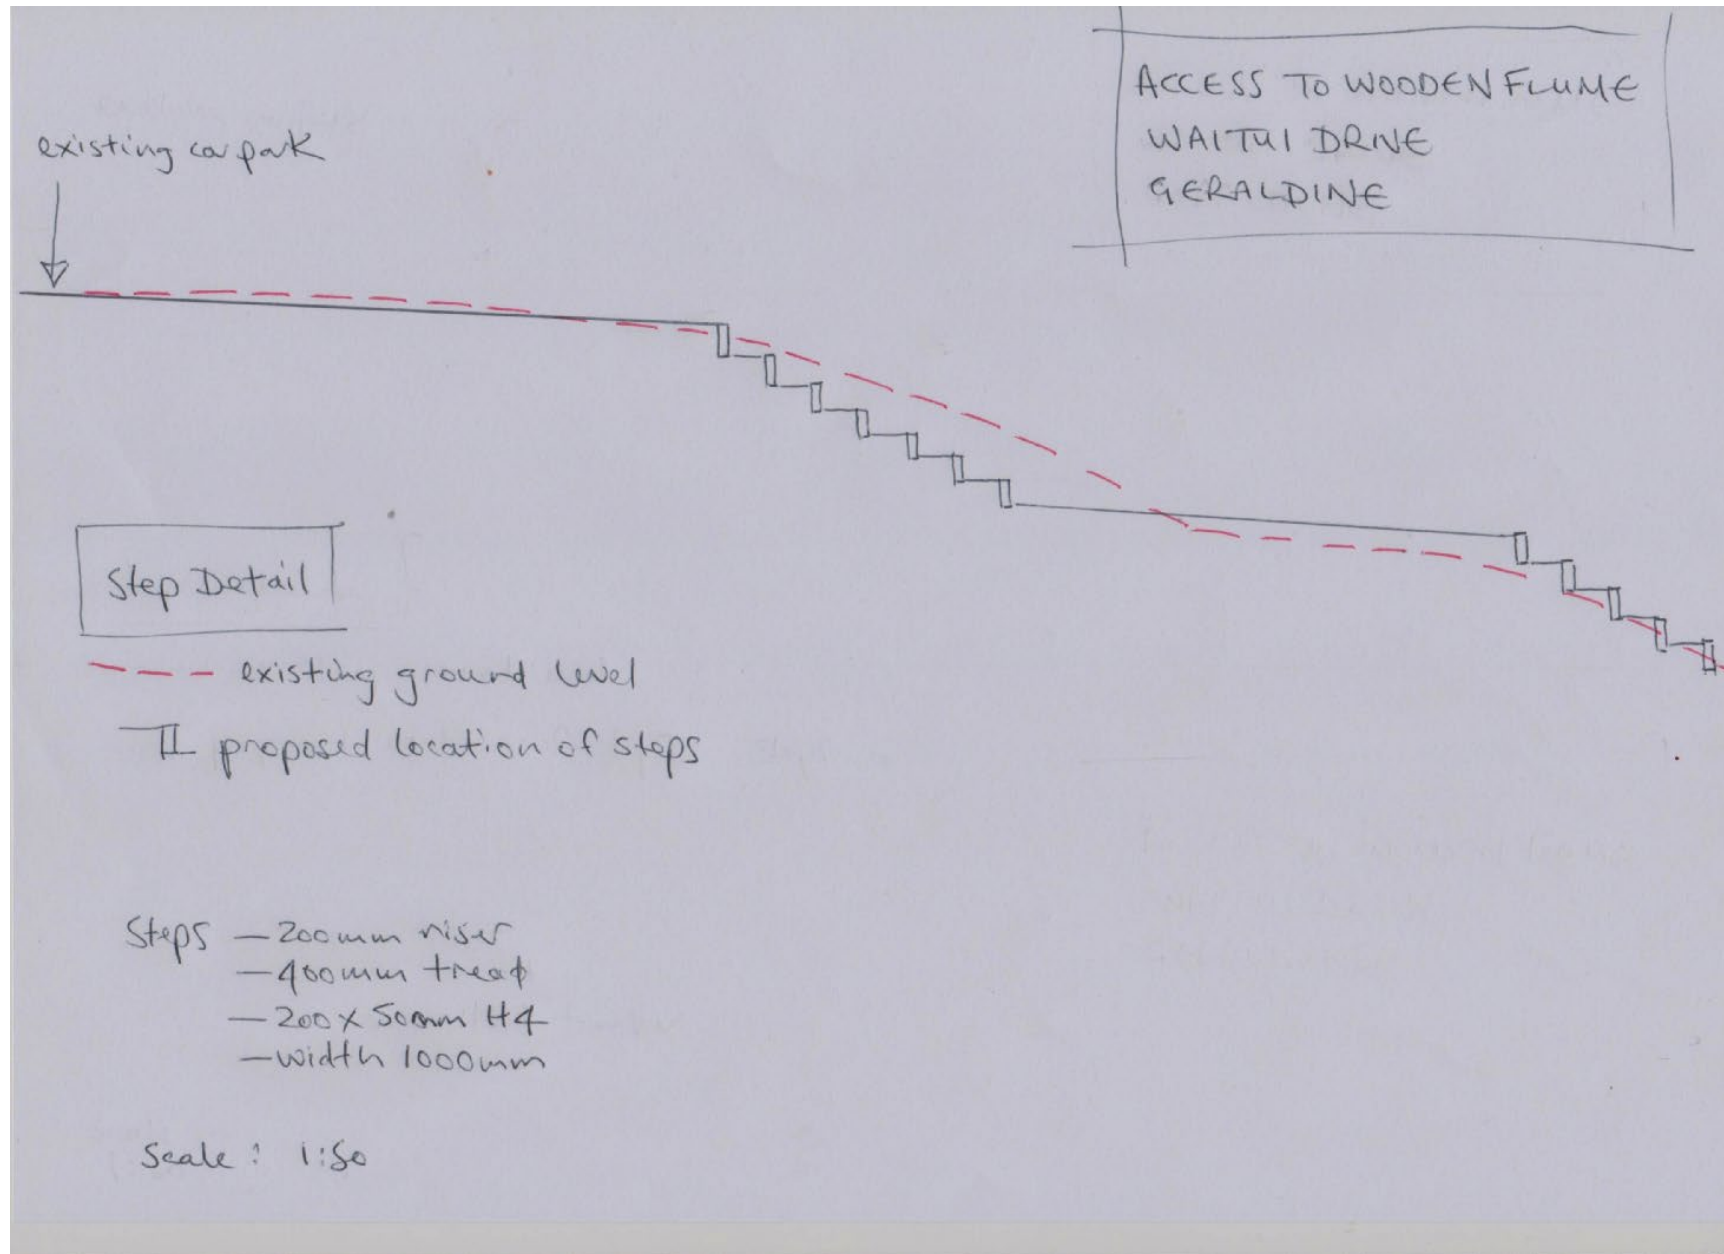 ACCESS TO WOODEN FLUME
WAITUI DRIVE
GERALDINE
existing carpark
Step Detail
existing ground level
proposed location of steps
Steps — 200mm riser
— 400mm tread
— 200 x 50mm H4
— width 1000mm
Scale : 1:50